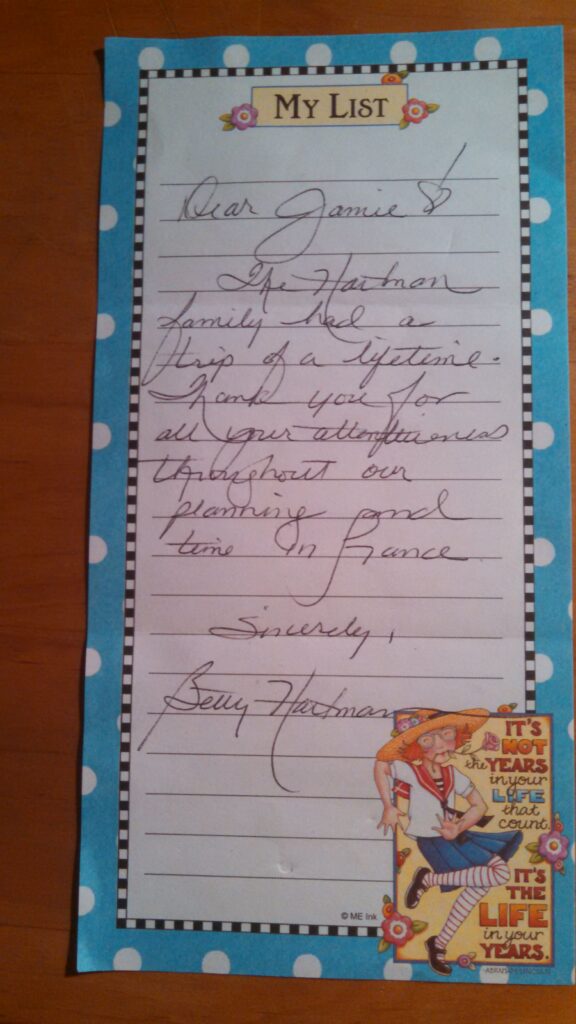 MY LIST
Dear Jamie
The Hartman
family had a
trip of a lifetime.
Thank you for
all your attentiveness
throughout our
planning and
time in France
Sincerely,
Betty Hartman
IT'S
NOT
the YEARS
in your
LIFE
that
count.
IT'S
THE
LIFE
in your
YEARS.
-ABRAHAM LINCOLN
© ME Ink